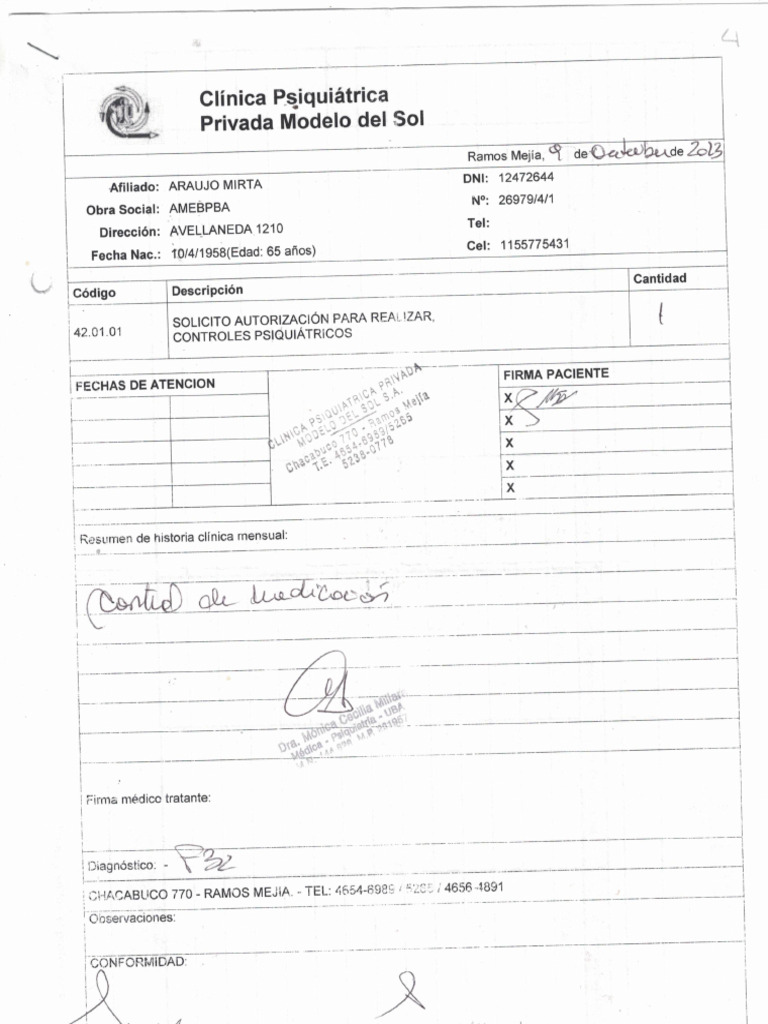 4
Clínica Psiquiátrica
Privada Modelo del Sol
Ramos Mejía, 9 de Octubre de 2023
Afiliado: ARAUJO MIRTA
DNI: 12472644
Obra Social: AMEBPBA
Nº: 26979/4/1
Dirección: AVELLANEDA 1210
Tel:
Fecha Nac.: 10/4/1958(Edad: 65 años)
Cel: 1155775431
Código Descripción Cantidad
42.01.01 SOLICITO AUTORIZACIÓN PARA REALIZAR,
CONTROLES PSIQUIÁTRICOS
1
FECHAS DE ATENCION
FIRMA PACIENTE
X
X
X
X
X
CLINICA PSIQUIATRICA PRIVADA
MODELO DEL SOL S.A.
Chacabuco 770 - Ramos Mejía
T.E. 4654-6989/5265
5238-0778
Resumen de historia clínica mensual:
Control de medicación
Dra. Mónica Cecilia
Médica - Psiquiatría - UBA
Firma médico tratante:
Diagnóstico: - F32
CHACABUCO 770 - RAMOS MEJIA. - TEL: 4654-6989 / 5265 / 4656-4891
Observaciones:
CONFORMIDAD: